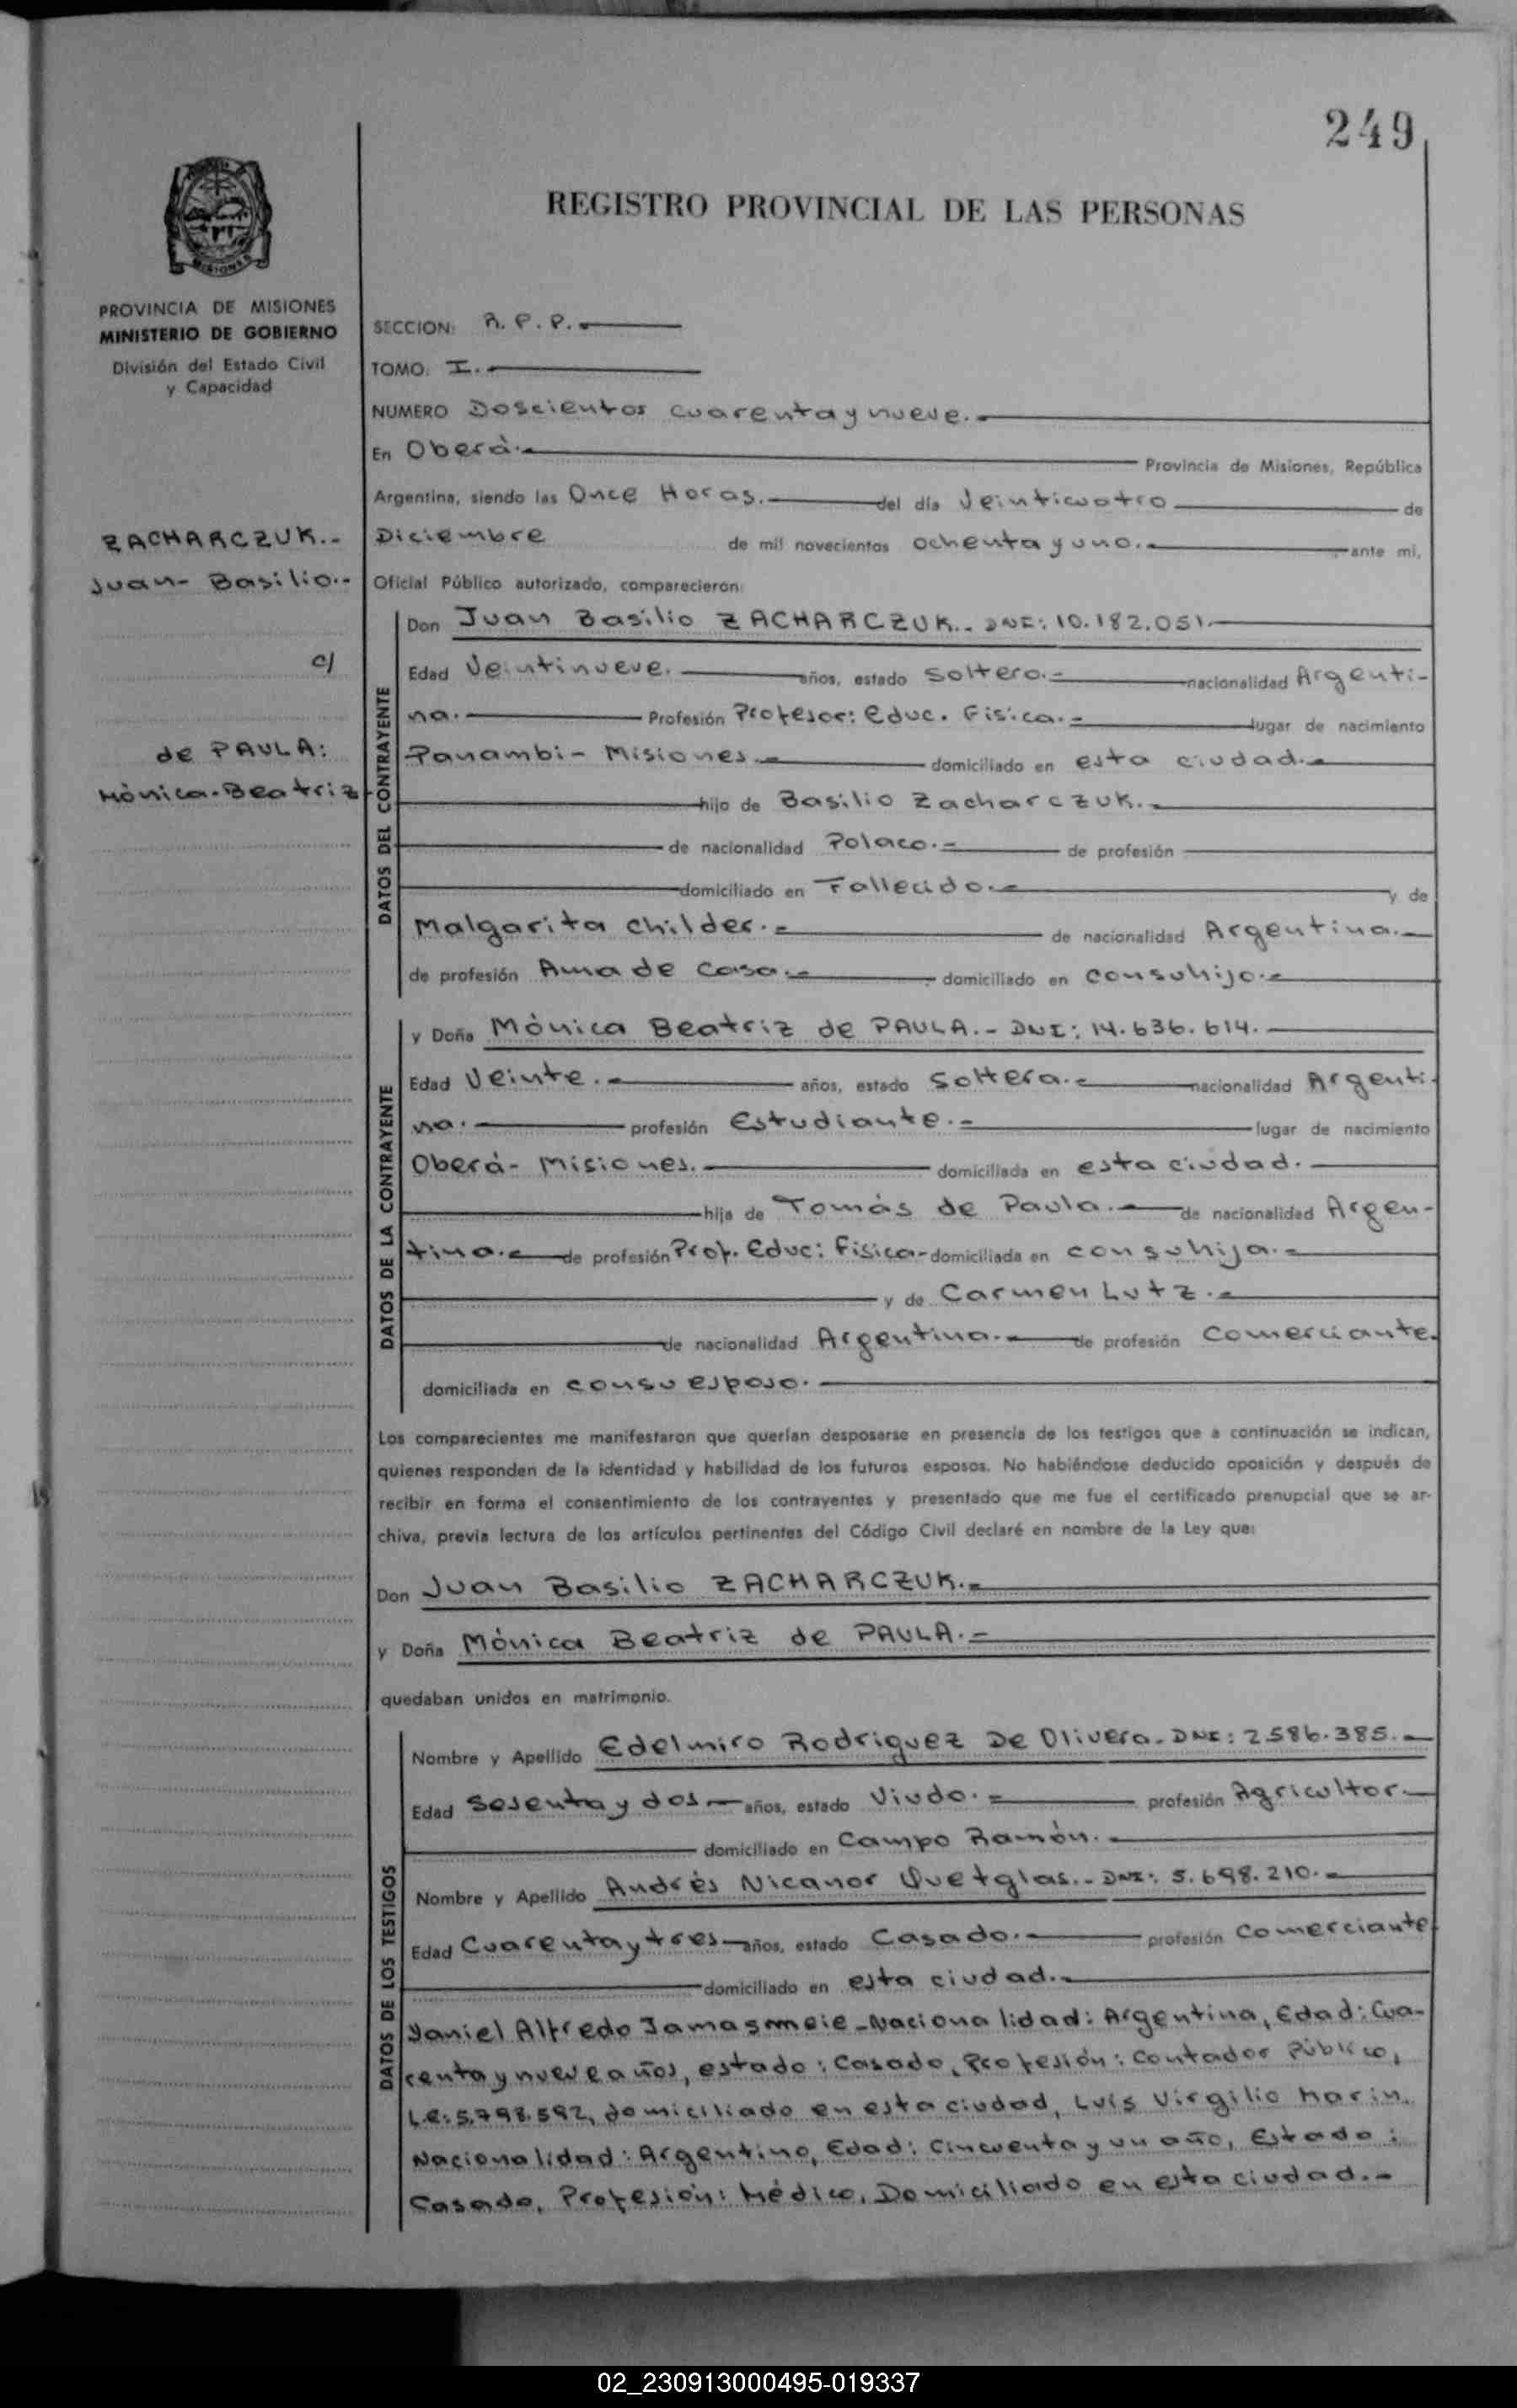 249
REGISTRO PROVINCIAL DE LAS PERSONAS
MISIONES
PROVINCIA DE MISIONES
MINISTERIO DE GOBIERNO
División del Estado Civil
y Capacidad
SECCION: R. P. P.
TOMO: I.
NUMERO Doscientos cuarenta y nueve.
En Oberà. Provincia de Misiones, República
Argentina, siendo las Once Horas. del día Veinticuatro de
Diciembre de mil novecientos ochenta y uno. ante mi,
Oficial Público autorizado, comparecieron:
ZACHARCZUK.-
Juan- Basilio.-
c/
de PAULA:
Mònica-Beatriz
DATOS DEL CONTRAYENTE
Don Juan Basilio ZACHARCZUK.. DNI: 10.182.051.
Edad Veintinueve. años, estado Soltero.- nacionalidad Argenti-
na. Profesión Profesor: Educ. Fisica.- lugar de nacimiento
Panambi- Misiones.- domiciliado en esta ciudad.-
hijo de Basilio Zacharczuk.-
de nacionalidad Polaco.- de profesión
domiciliado en Fallecido.- y de
Malgarita Childer.- de nacionalidad Argentina.-
de profesión Ama de Casa.- domiciliado en con su hijo.-
DATOS DE LA CONTRAYENTE
y Doña Mònica Beatriz de PAULA.- DNI: 14.636.614.
Edad Veinte.- años, estado Soltera.- nacionalidad Argenti-
na. profesión Estudiante.- lugar de nacimiento
Oberà- Misiones. domiciliada en esta ciudad.
hija de Tomás de Paula.- de nacionalidad Argen-
tina.- de profesión Prof. Educ: Fisica- domiciliada en con su hija.-
y de Carmen Lutz.-
de nacionalidad Argentina.- de profesión Comerciante.
domiciliada en con su esposo.
Los comparecientes me manifestaron que querían desposarse en presencia de los testigos que a continuación se indican,
quienes responden de la identidad y habilidad de los futuros esposos. No habiéndose deducido oposición y después de
recibir en forma el consentimiento de los contrayentes y presentado que me fue el certificado prenupcial que se ar-
chiva, previa lectura de los artículos pertinentes del Código Civil declaré en nombre de la Ley que:
Don Juan Basilio ZACHARCZUK.-
y Doña Mònica Beatriz de PAULA.-
quedaban unidos en matrimonio.
DATOS DE LOS TESTIGOS
Nombre y Apellido Edelmiro Rodriguez De Olivera- DNI: 2.586.385.-
Edad Sesenta y dos- años, estado Viudo.- profesión Agricultor.-
domiciliado en Campo Ramòn.-
Nombre y Apellido Andrès Nicanor Quetglas.- DNI: 5.698.210.-
Edad Cuarenta y tres- años, estado Casado.- profesión Comerciante
domiciliado en esta ciudad.-
Daniel Alfredo -Nacionalidad: Argentina, Edad: Cua-
renta y nueve años, estado: Casado, Profesión: Contador Pùblico,
L.E: 5.798.592, domiciliado en esta ciudad, Luis Virgilio Marin.
Nacionalidad: Argentino, Edad: Cincuenta y un año, Estado:
Casado, Profesiòn: Mèdico, Domiciliado en esta ciudad.-
02_230913000495-019337